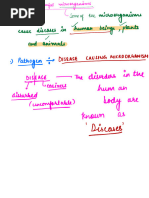 microorganisms
Some of the microorganisms
cause diseases in human beings, plants
and animals
:) Pathogen ÷ DISEASE CAUSING MICROORGANISM
DISEASE — The disorders in the
disturbed human
(uncomfortable) body are
known as
'Diseases'